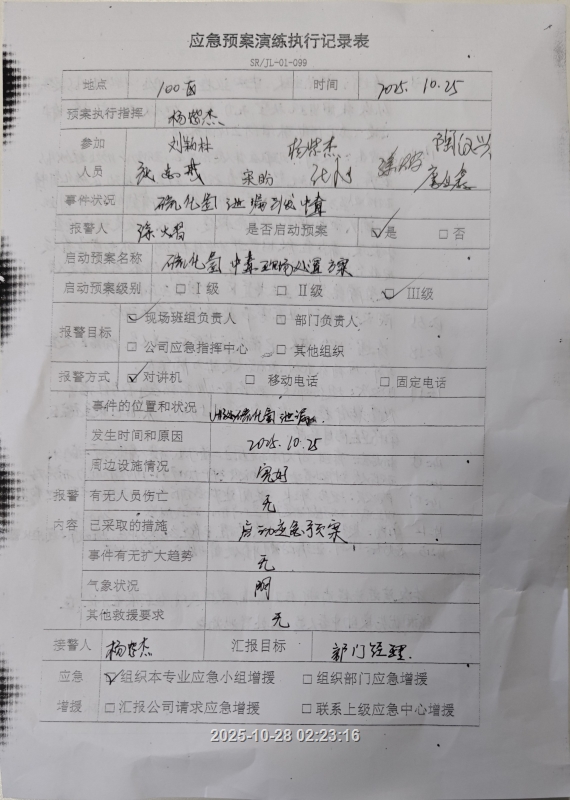 应急预案演练执行记录表
SR/JL-01-099
地点 100亩 时间 2025.10.25
预案执行指挥
参加人员
事件状况 硫化氢泄漏引发中毒
报警人 是否启动预案 ☑是 □否
启动预案名称 硫化氢中毒现场处置方案
启动预案级别 □Ⅰ级 □Ⅱ级 ☑Ⅲ级
报警目标 ☑现场班组负责人 □部门负责人
□公司应急指挥中心 □其他组织
报警方式 ☑对讲机 □移动电话 □固定电话
报警内容
事件的位置和状况 硫化氢泄漏
发生时间和原因 2025.10.25
周边设施情况 完好
有无人员伤亡 无
已采取的措施 启动应急预案
事件有无扩大趋势 无
气象状况
其他救援要求 无
接警人 汇报目标 部门经理
应急增援 ☑组织本专业应急小组增援 □组织部门应急增援
□汇报公司请求应急增援 □联系上级应急中心增援
2025-10-28 02:23:16